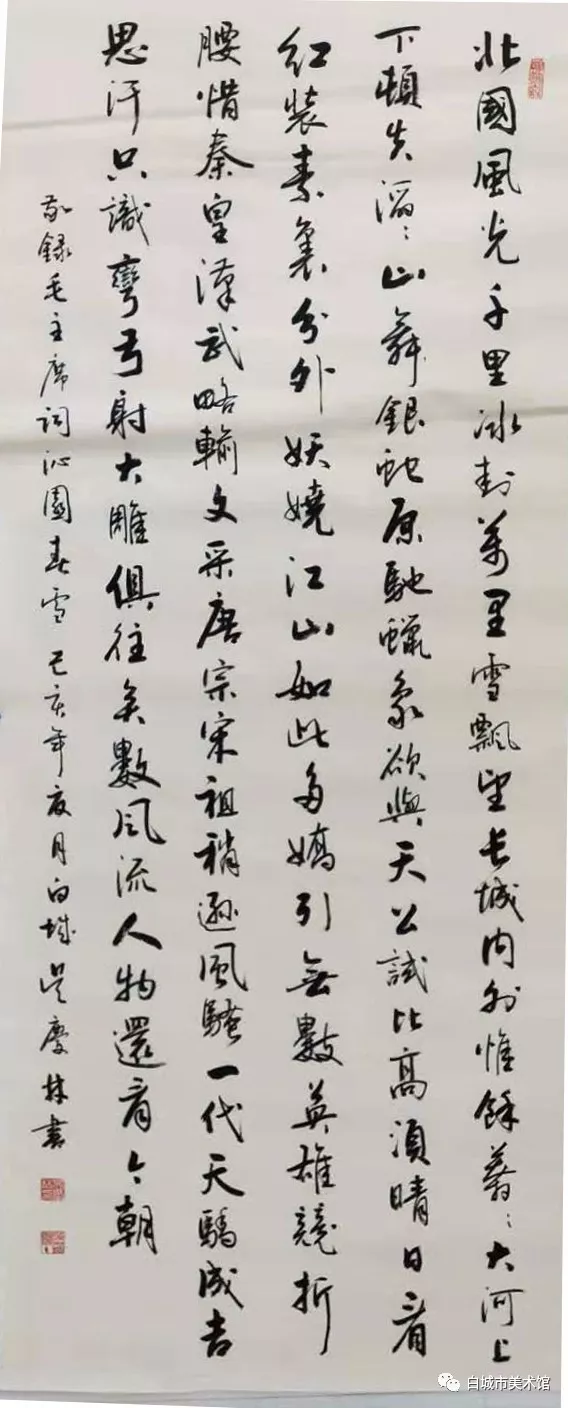 北國風光千里冰封萬里雪飄望長城內外惟餘莽〻大河上
下頓失滔〻山舞銀蛇原馳蠟象欲與天公試比高須晴日看
紅裝素裹分外妖嬈江山如此多嬌引無數英雄競折
腰惜秦皇漢武略輸文采唐宗宋祖稍遜風騷一代天驕成吉
思汗只識彎弓射大雕俱往矣數風流人物還看今朝
敬録毛主席词沁園春雪己亥年夏月白城吴慶林書
白城市美术馆